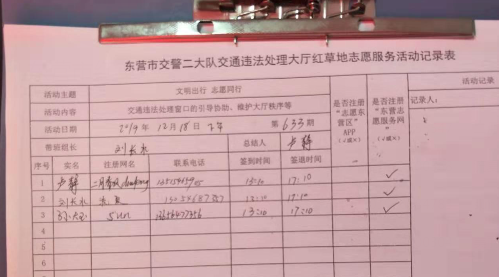 东营市交警二大队交通违法处理大厅红草地志愿服务活动记录表
活动主题 文明出行 志愿同行 是否注册“志愿东营区”APP(√或×) 是否注册“东营志愿服务网”(√或×) 活动记录
活动内容 交通违法处理窗口的引导协助、维护大厅秩序等 记录人:
活动日期 2019年12月18日下午 第633期
带班组长 刘长水 总结人 步静
序号 实名 注册网名 联系电话 签到时间 签退时间
1 步静 13:10 17:10 √
2 刘长水 13:10 17:10 √
3 sun 13:10 17:10 √
4
5